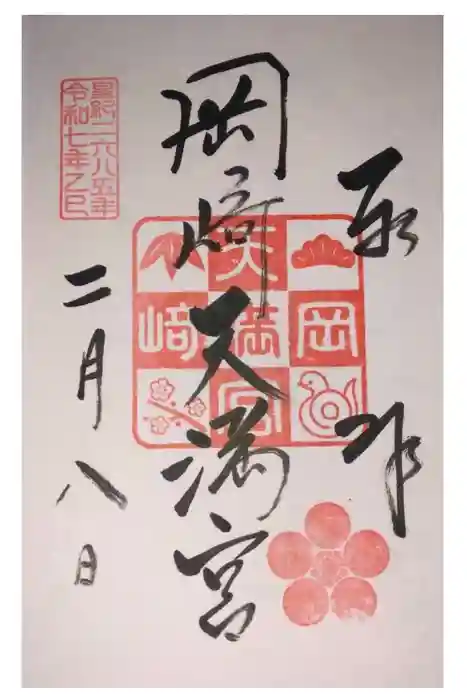 奉拝
岡﨑天満宮
天満宮
岡﨑
皇紀二六八五年
令和七年乙巳
二月八日